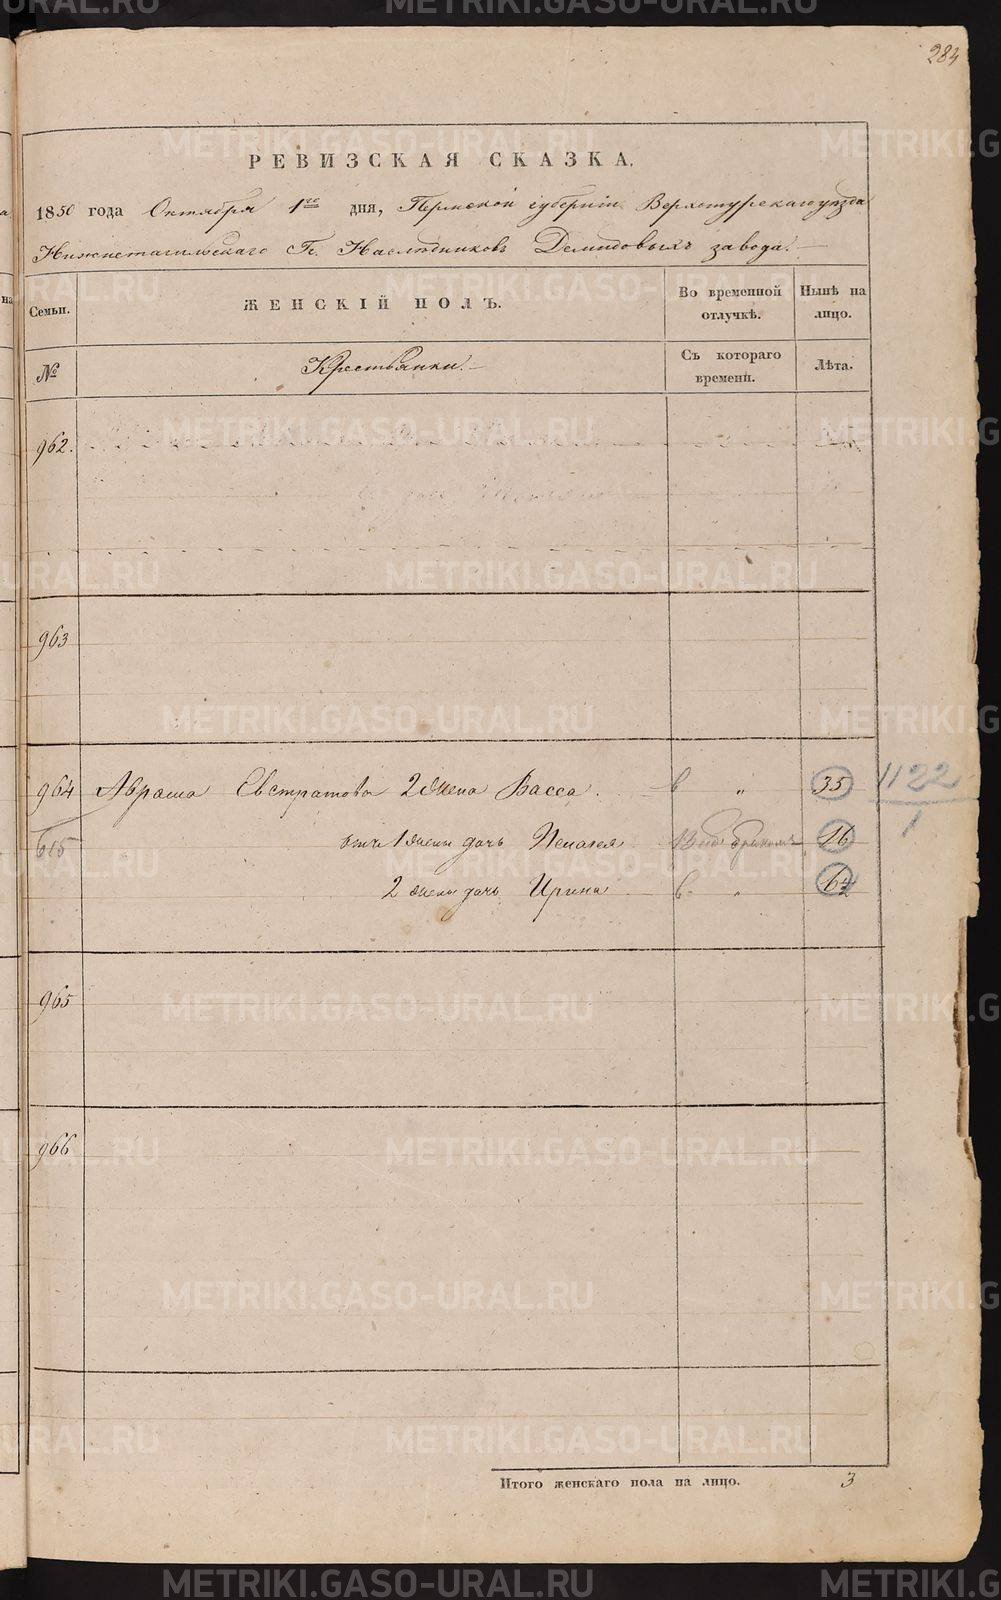 284
РЕВИЗСКАЯ СКАЗКА.
1850 года Октября 1го дня, Пермской губернiи Верхотурскаго уезда
Нижнетагильскаго Гг. Наследниковъ Демидовыхъ завода.
Семьи. ЖЕНСКІЙ ПОЛЪ. Во временной отлучкѣ. Нынѣ на лицо.
№ Крестьянки. Съ котораго времени. Лѣта.
962.
963
964 Абрама Евстратова 2 жена Васса в " 35
615 отъ 1 жены дочь Пелагея 16
2 жены дочь Ирина в " 6½
1122
1
965
966
Итого женскаго пола на лицо. 3
METRIKI.GASO-URAL.RU